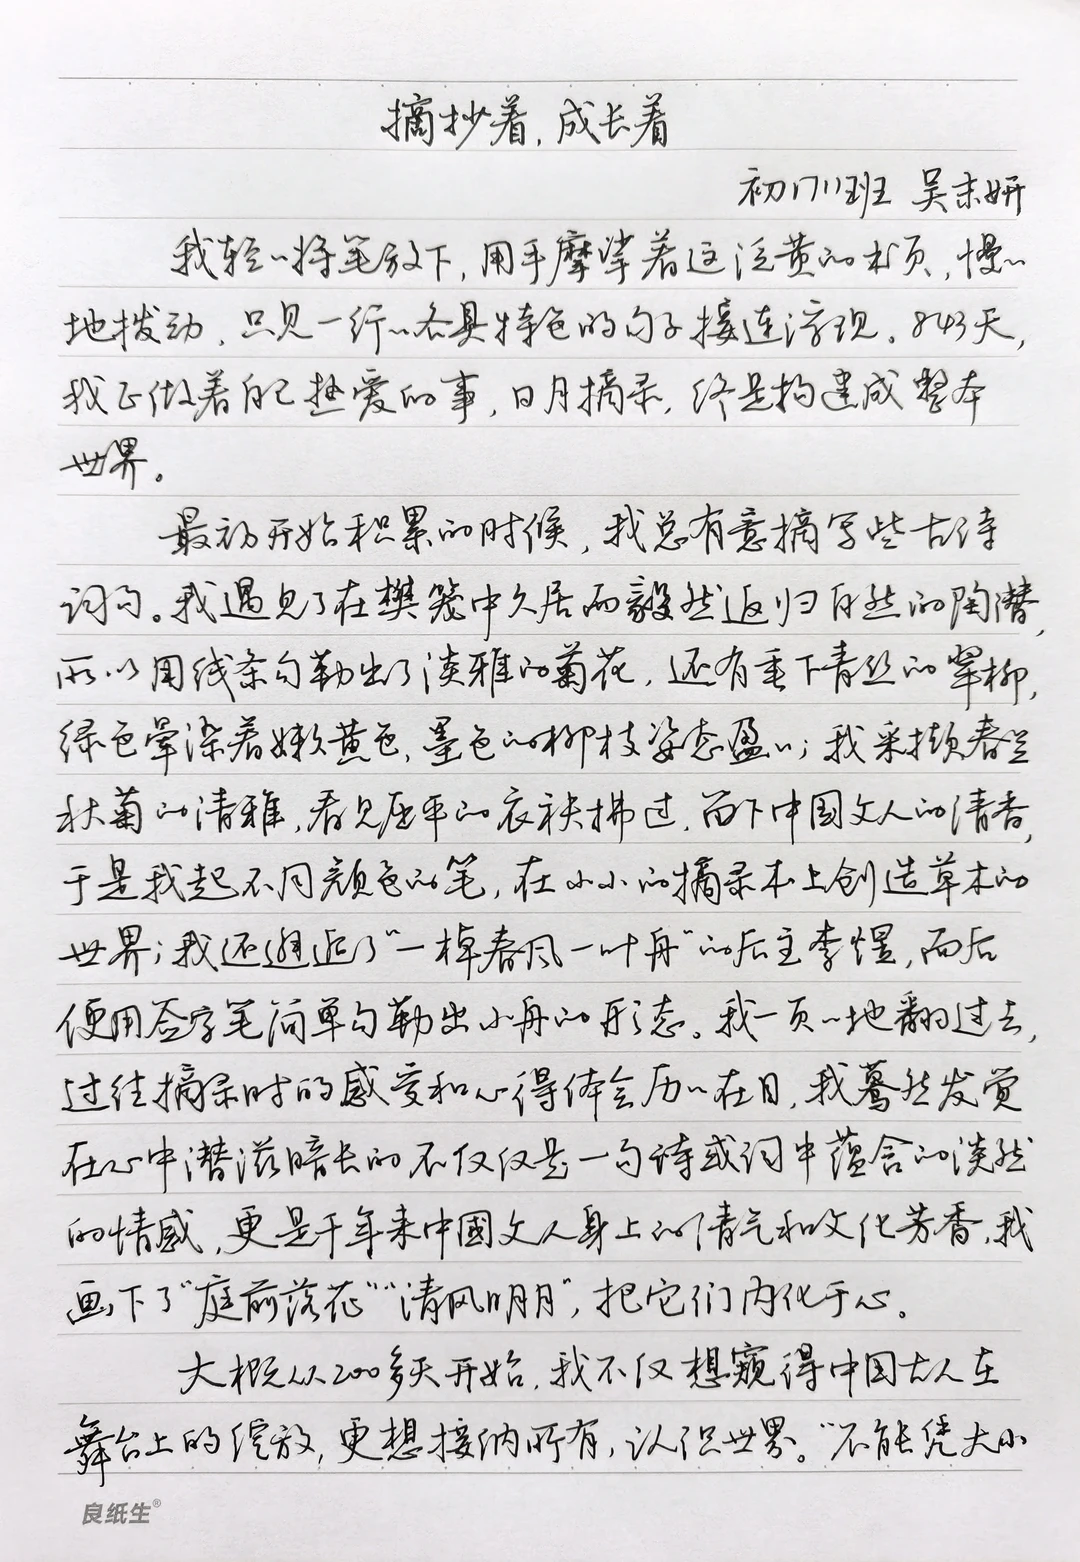 摘抄着，成长着
初1711班 吴末妍
我轻轻将笔放下，用手摩挲着这泛黄的书页，慢慢
地拨动，只见一行行各具特色的句子接连浮现。843天，
我正做着自己热爱的事，日月摘录，终是构建成整本
世界。
最初开始积累的时候，我总有意摘写些古诗
词句。我遇见了在樊笼中久居而毅然返归自然的陶潜，
所以用线条勾勒出了淡雅的菊花，还有垂下青丝的翠柳，
绿色晕染着嫩黄色，墨色的柳枝姿态盈盈；我采撷春兰
秋菊的清雅，看见屈平的衣袂拂过，留下中国文人的清香，
于是我起不同颜色的笔，在小小的摘录本上创造草木的
世界；我还邂逅了“一棹春风一叶舟”的后主李煜，而后
便用签字笔简单勾勒出小舟的形态。我一页页地翻过去，
过往摘录时的感受和心得体会历历在目，我蓦然发觉
在心中潜滋暗长的不仅仅是一句诗或词中蕴含的淡然
的情感，更是千年来中國文人身上的清气和文化芳香，我
画下了“庭前落花”“清风明月”，把它们内化于心。
大概从200多天开始，我不仅想窥得中国古人在
舞台上的绽放，更想接纳所有，认识世界。“不能凭大小
良纸生®